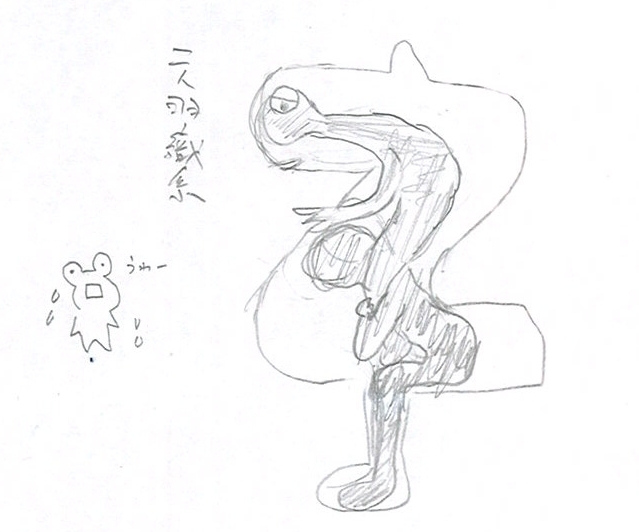 二人羽織系
うわー